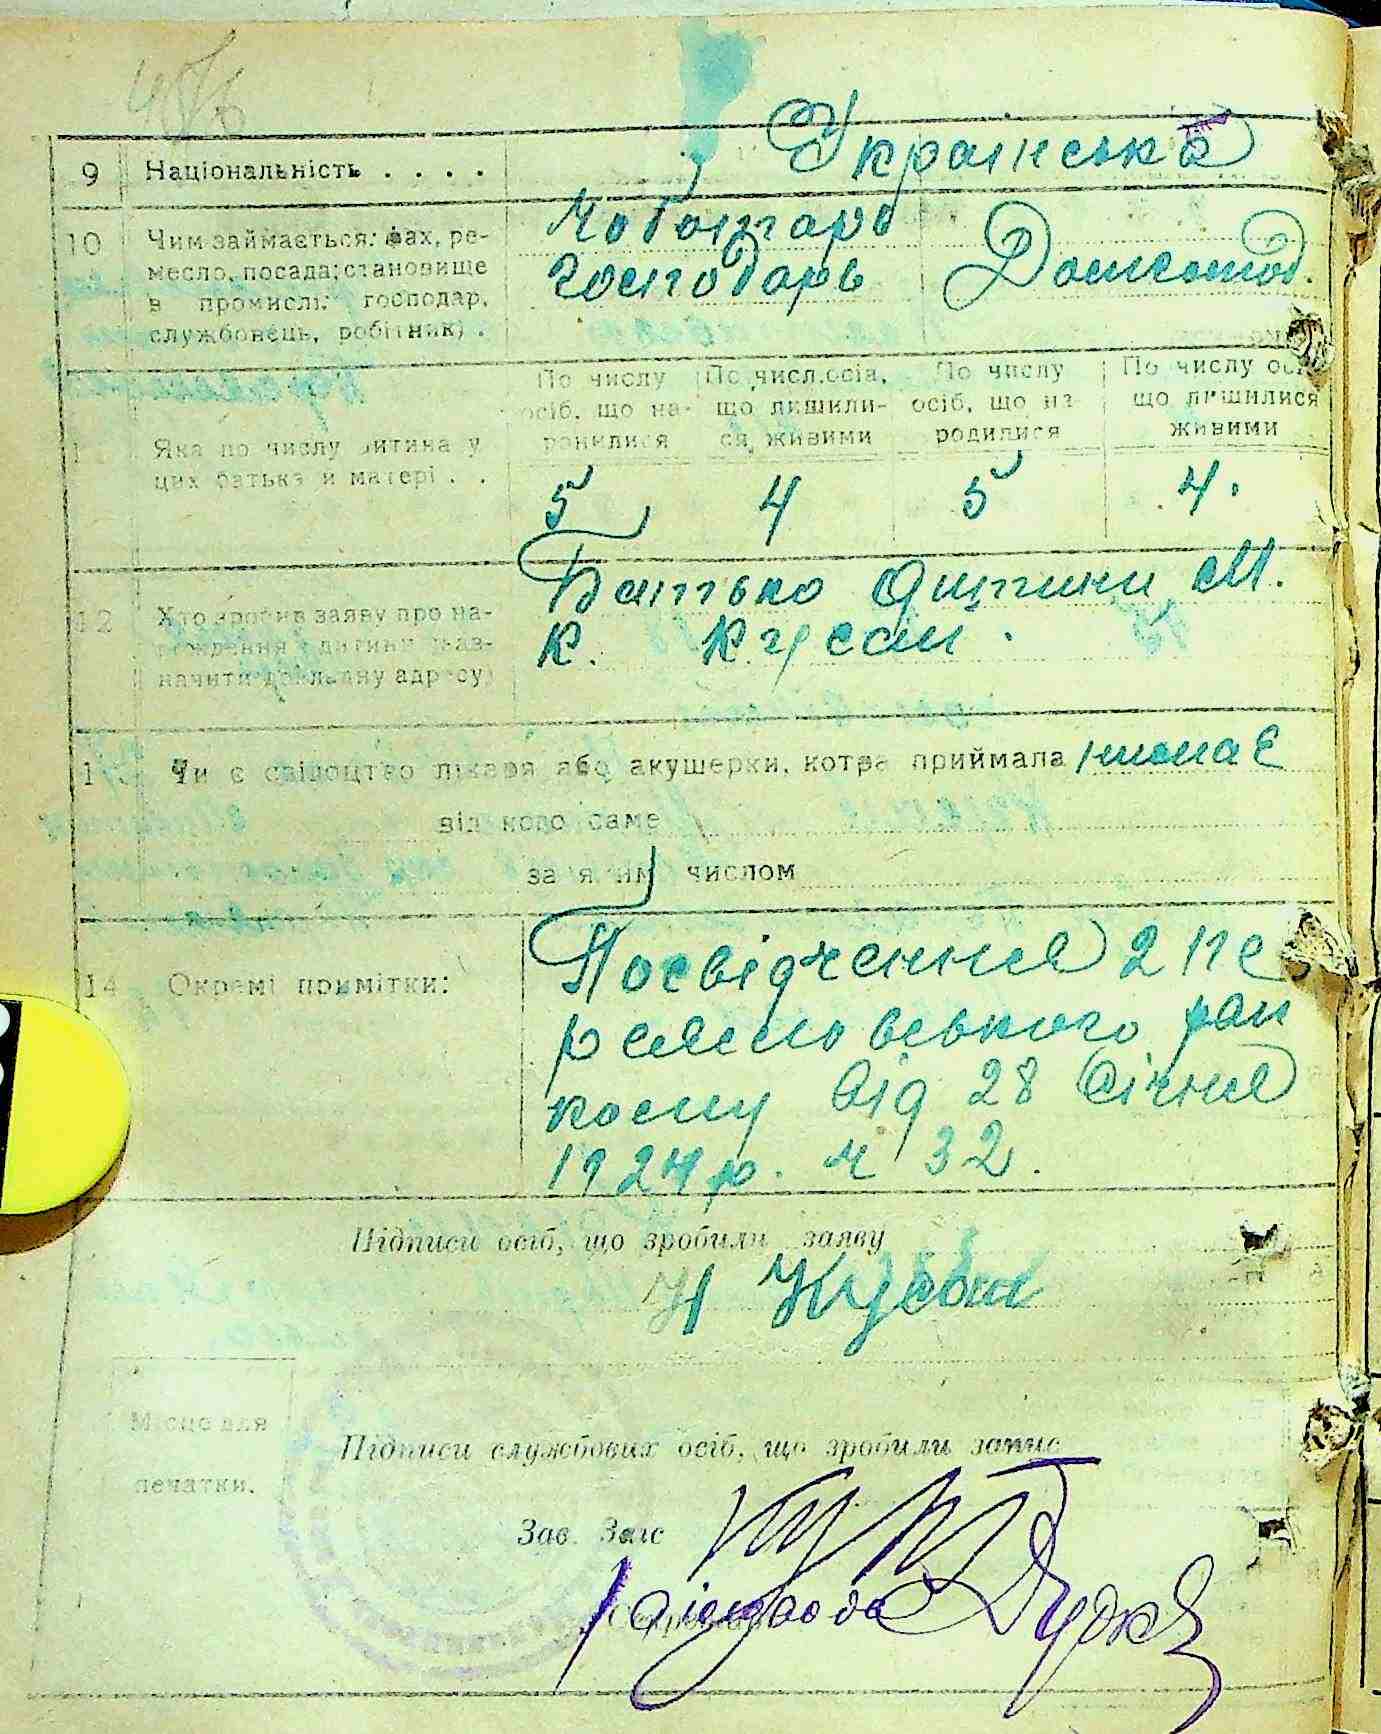 Українська
9 Національність . . . .
10 Чим займається: фах, ре-
месло, посада; становище
в промислі: господар,
службовець, робітник) .
Чоботарь
Господарь Домгоспод.
По числу осіб, що на- родилися
По числ. осіб, що лишили- ся живими
По числу осіб, що на- родилися
По числу осіб що лишилися живими
1 Яка по числу дитина у
цих батька й матері . .
5 4 5 4.
12 Хто зробив заяву про на-
родження дитини (заз-
начити докладну адресу)
Батько дитини М.
К. Кусам.
1 Чи є свідоцтво лікаря або акушерки, котра приймала немає
від кого саме
за яким числом
14 Окремі примітки:
Посвідчення 2 Пе
реяславського рай
кому від 28 Січня
1924 р. ч 32.
Підписи осіб, що зробили заяву
Місце для
печатки.
Підписи службових осіб, що зробили запис
Зав. Загс